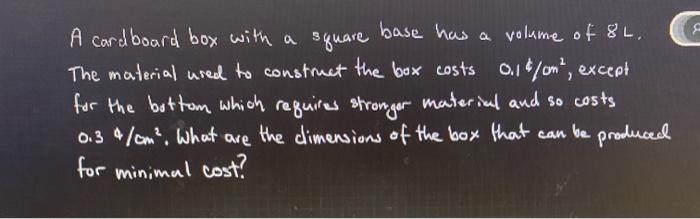 A cardboard box with a square base has a volume of 8 L.
The material used to construct the box costs 0.1 ¢/cm², except
for the bottom which requires stronger material and so costs
0.3 ¢/cm². What are the dimensions of the box that can be produced
for minimal cost?